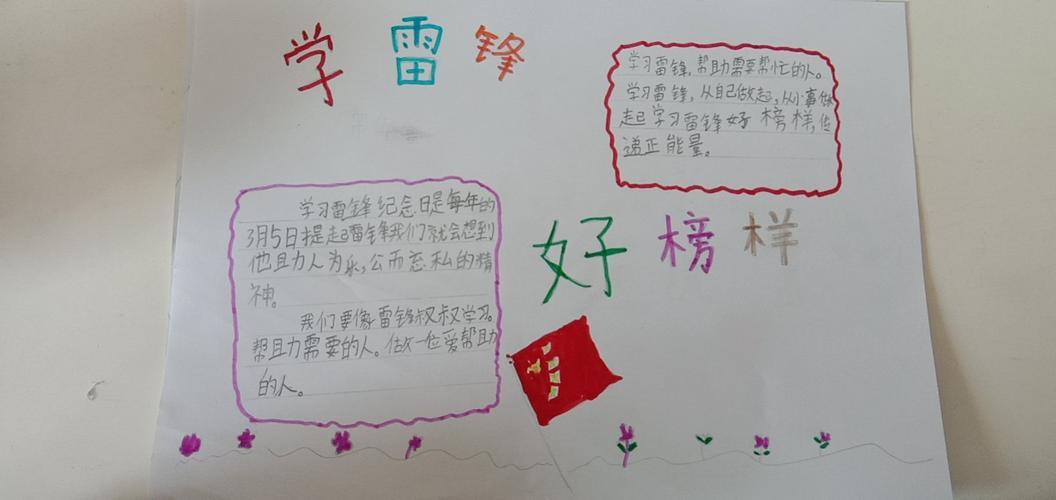 学雷锋
学习雷锋,帮助需要帮忙的人。
学习雷锋,从自己做起,从小事做
起学习雷锋好榜样,传
递正能量。
好榜样
学习雷锋纪念日是每年的
3月5日提起雷锋我们就会想到
他助人为乐,公而忘私的精
神。
我们要像雷锋叔叔学习。
帮助需要的人。做一位爱帮助
的人。